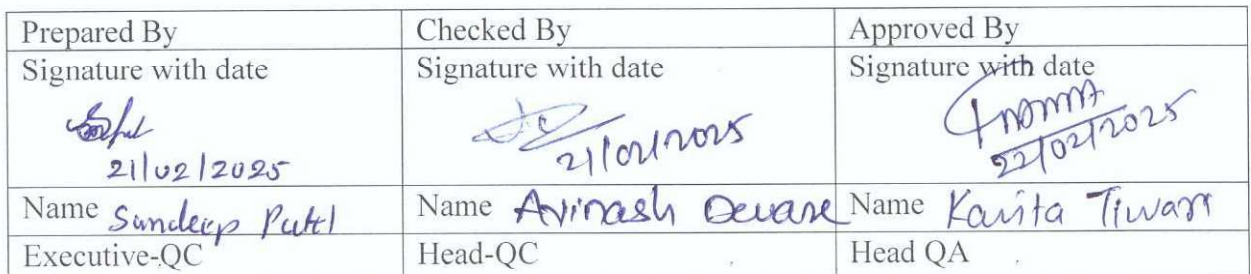 Prepared By Checked By Approved By
Signature with date Signature with date Signature with date
21/02/2025 21/02/2025 22/02/2025
Name Sundeep Patil Name Avinash Deware Name Kavita Tiwari
Executive-QC Head-QC Head QA